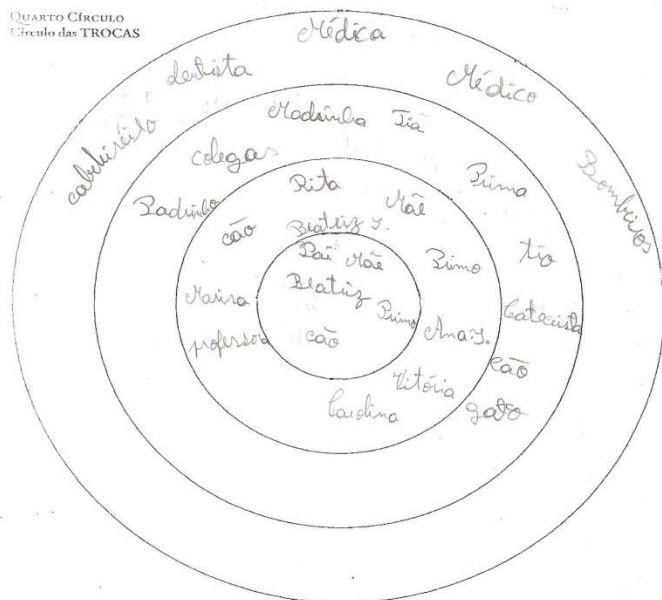 QUARTO CÍRCULO
Círculo das TROCAS
Médica
dentista
Médico
cabeleireiro
Bombeiros
Madrinha Tia
colegas
Prima
Padrinho
tio
Catequista
cão
gato
Rita
Mãe
cão
Beatriz J.
Primo
Marisa
professora
Ana J.
Vitória
Carolina
Pai Mãe
Beatriz
Primo
cão